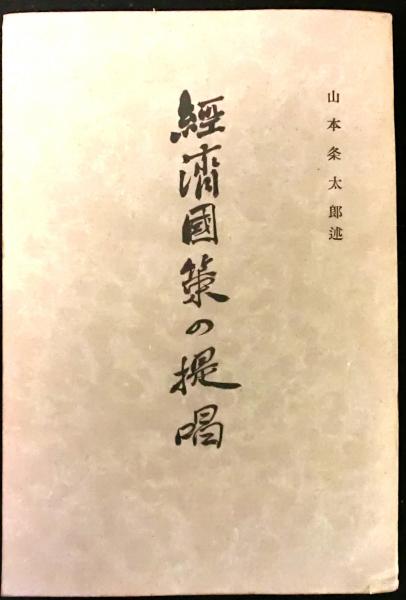 山本条太郎述
經濟國策の提唱